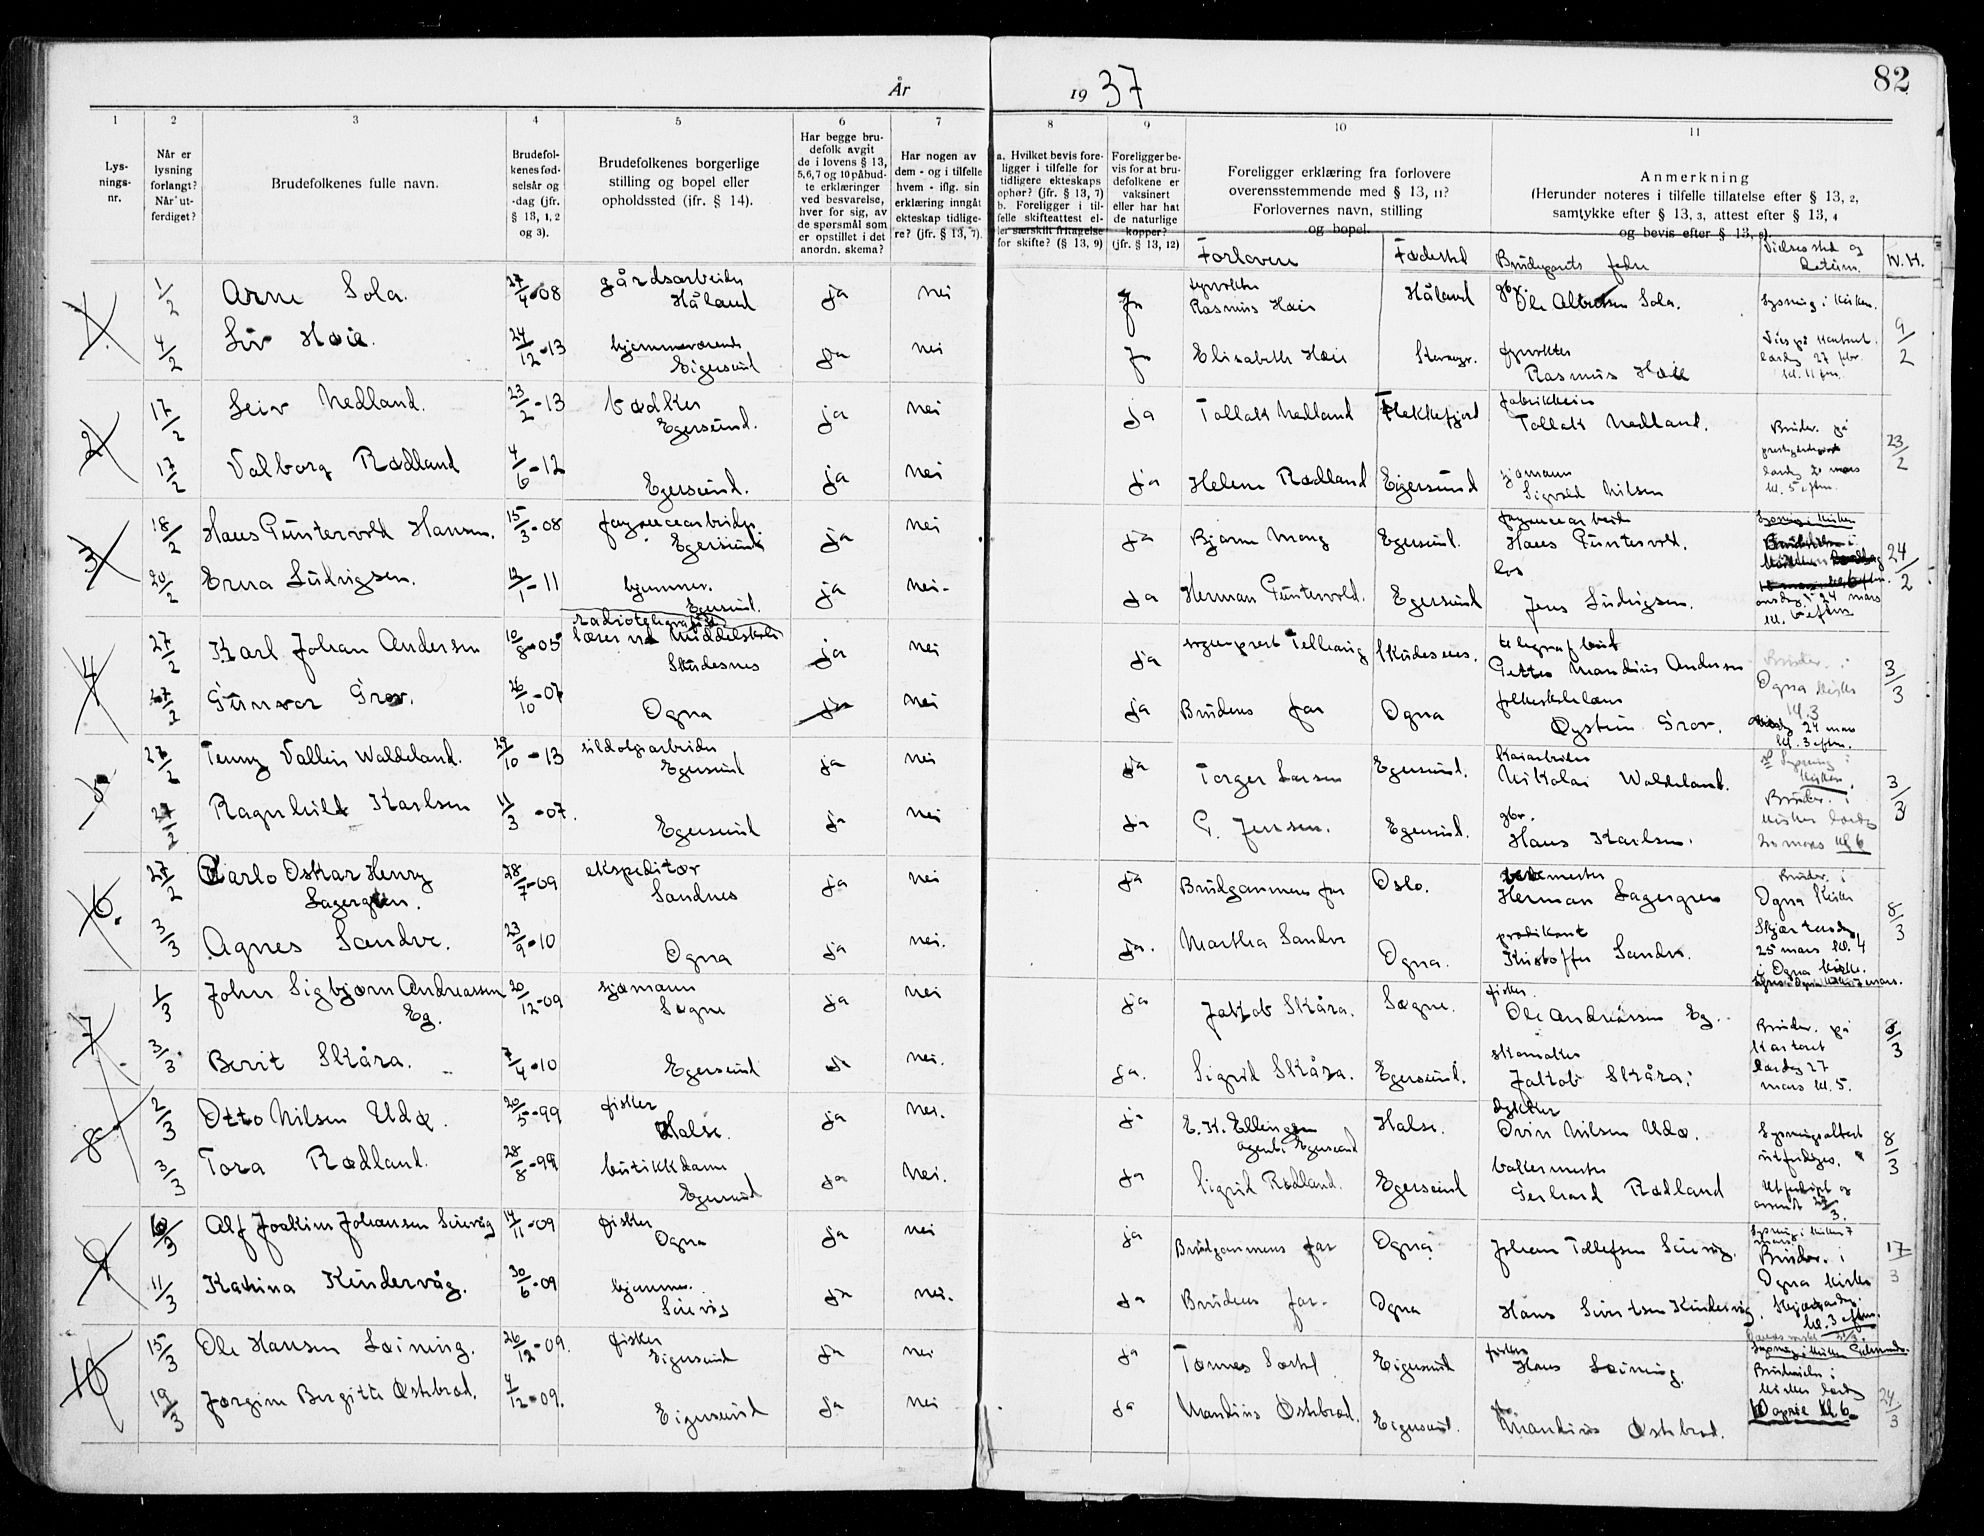 År 1937
82
1 2 3 4 5 6 7 8 9 10 11
Lysningsnr.
Når er lysning forlangt? Når utferdiget?
Brudefolkenes fulle navn.
Brudefolkenes fødselsår og -dag (jfr. § 13, 1, 2 og 3).
Brudefolkenes borgerlige stilling og bopel eller opholdssted (ifr. § 14).
Har begge brudefolk avgit de i lovens § 13, 5,6,7 og 10 påbudte erklæringer ved besvarelse, hver for sig, av de spørsmål som er opstillet i det anordn. skema?
Har nogen av dem - og i tilfelle hvem - iflg. sin erklæring inngåt ekteskap tidligere? (jfr. § 13, 7).
a. Hvilket bevis foreligger i tilfelle for tidligere ekteskaps ophør? (jfr. § 13, 7) b. Foreligger i tilfelle skifteattest eller særskilt fritagelse for skifte? (§ 13, 9)
Foreligger bevis for at brudefolkene er vaksinert eller har hat de naturlige kopper? (jfr. § 13, 12)
Foreligger erklæring fra forlovere overensstemmende med § 13, 11? Forlovernes navn, stilling og bopel.
Anmerkning (Herunder noteres i tilfelle tillatelse efter § 13, 2, samtykke efter § 13, 3, attest efter § 13, 4 og bevis efter § 13, 8).
Forlovere Fødested Brudeparets fedre Vielsessted og datum.
1. 1/2 Arne Sola. 27/4-08 gårdsarbeider Håland ja nei ja Rasmus Høie Håland gbr. Ole Sola. Lysning i kirken.
4/2 Liv Høie. 24/12-13 hjemmeværende Eigersund ja nei ja Elisabeth Høie fyrvokter Rasmus Høie lørdag 27 febr. 9/2
2 17/2 Leiv Nedland. 23/2-13 bødker Egersund. ja nei ja Tollak Nedland Flekkefjord Tollak Nedland. Brudev. på
17/2 Valborg Rødland 4/6-12 Egersund. ja nei ja Helene Rødland Egersund sjømann Sigvald Nilsen lørdag 20 mars kl. 5 eftm. 23/2
3 18/2 Hans Guntervold Hansen. 15/3-08 fayancearbeider Egersund ja nei ja Bjarne Mong Egersund. fayancearbeid Hans Guntervold. Lysning i kirken
20/2 Erna Ludvigsen. 12/1-11 hjemmev. Egersund. ja nei- ja Herman Guntervold. Egersund los Jens Ludvigsen. onsdag 24 mars kl. 6 eftm 24/2
4 27/2 Karl Johan Andersen 10/8-05 radiotelegrafist lærer ved Middelskole Skudesnes ja nei ja sogneprest Telhaug Skudesnes. Petter Mandius Andersen Brudev. i
27/2 Gunvor Grov. 26/10-07 Ogna ja nei ja Brudens far Ogna folkeskolelærer Øystein Grov. Ogna kirke 24 mars kl. 3 eftm. 3/3
5 27/2 Tenny Vallin Waldeland. 29/10-13 sildoljearbeider Egersund ja nei ja Torger Larsen Egersund. kaiarbeider Nikolai Waldeland. Lysning i kirken.
27/2 Ragnhild Karlsen 11/3-07. Egersund ja nei ja G. Jensen. Egersund. gbr. Hans Karlsen. Brudev. i kirken lørdag 20 mars kl 6 3/3
6. 27/2 Karlo Oskar Henry Lagergren. 28/7-09 ekspeditør Sandnes ja nei ja Brudgommens far Oslo. Herman Lagergren Brudev. i Ogna kirke
3/3 Agnes Sandve. 23/9-10 Ogna ja nei. ja. Martha Sandve Ogna. predikant Kristoffer Sandve. Skjærtorsdag 25 mars kl. 4 i Ogna kirke. 8/3
7. 1/3 John Sigbjørn Andreassen Eg. 20/12-09 sjømann Søgne ja nei ja Jakob Skåra. Søgne. fisker Ole Andreassen Eg. Brudev. på
3/3. Berit Skåra. 7/4-10 Egersund ja nei. ja. Sigrid Skåra. Egersund. skomaker Jakob Skåra. lørdag 27 mars kl. 5. 8/3
8. 2/3 Otto Nilsen Udø. 20/5-99 fisker Halse. ja nei. ja E. K. Ellingsen agent, Egersund Halse. Nilsen Udø. Lysningsattest utferdiges.
3/3 Tora Rødland. 28/8-99 butikkdame Egersund ja nei. ja Sigrid Rødland. Egersund bakermester Gerhard Rødland Utferdiget og avsendt 8/3
9 10/3 Alf Joakim Johansen Sirevåg 14/11-09 fisker Ogna ja nei ja Brudgommens far Ogna Johan Tollefsen Sirevåg. Brudev. i
11/3 Katrina Kindervåg. 30/6-09 hjemmev. Sirevåg ja nei. ja Brudens far. Ogna Hans Sivertsen Kindervåg Ogna kirke kl. 3 eftm. 17/3
10 15/3 Ole Hansen Leining. 26/12-09. fisker Eigersund ja nei ja Tønnes Eigersund fisker Hans Leining. Lysning i kirken
19/3 Jørgine Bergitte Østebrød. 4/12-09. Eigersund ja nei ja Mandius Østebrød. Eigersund. Mandius Østebrød. kirken lørdag 10 april kl. 6. 24/3